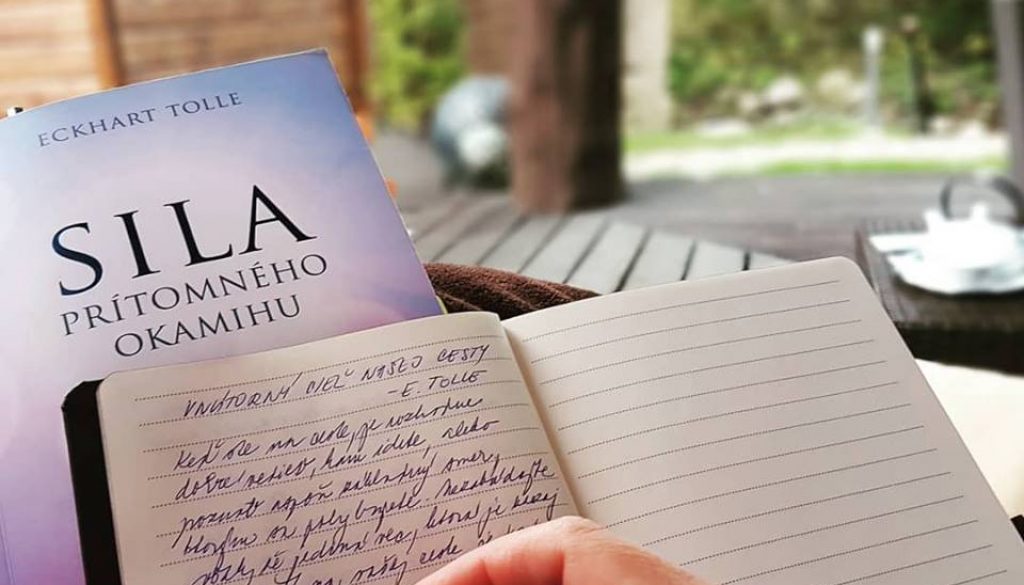 ECKHART TOLLE
SILA
PRÍTOMNÉHO
OKAMIHU
VNÚTORNÝ CIEĽ NAŠEJ CESTY
- E. TOLLE
Keď ste na ceste, je rozhodne
dobré vedieť, kam idete, alebo
poznať aspoň základný smer,
ktorým sa pohybujete. Nezabúdajte
však na jedinú vec, ktorá je
na vašej ceste